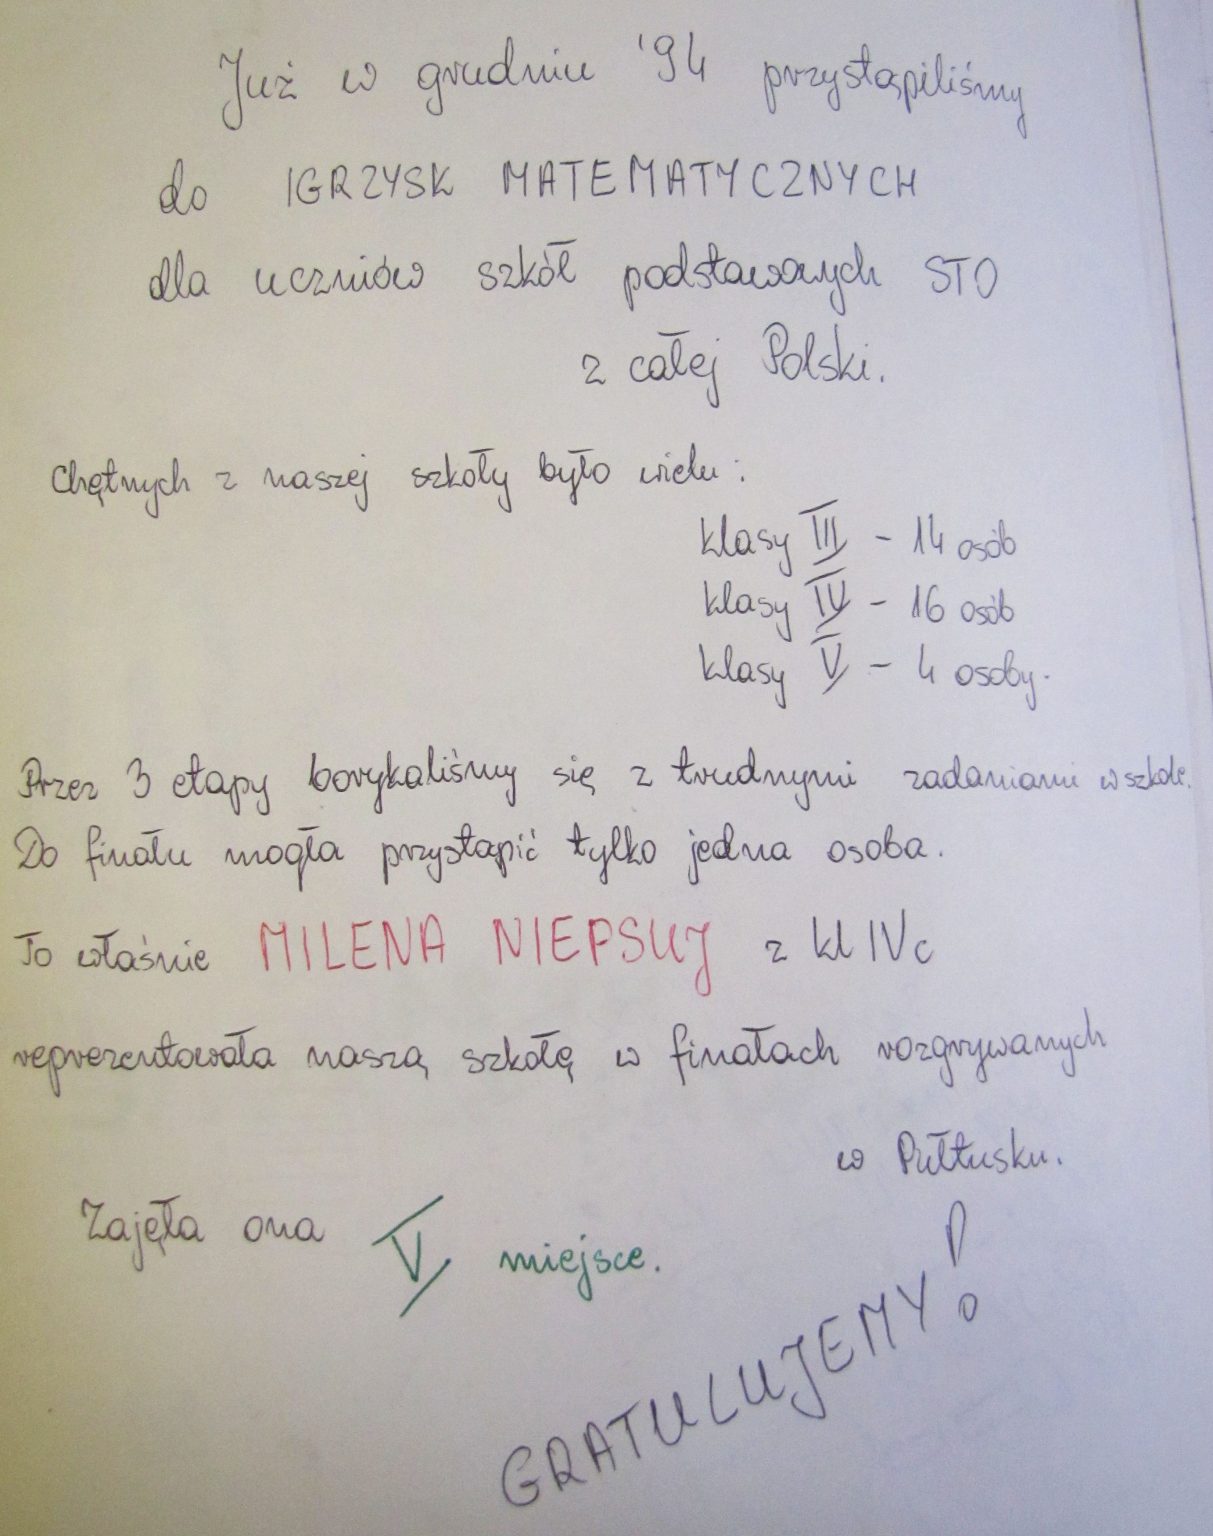 Już w grudniu '94 przystąpiliśmy
do IGRZYSK MATEMATYCZNYCH
dla uczniów szkół podstawowych STO
z całej Polski.
Chętnych z naszej szkoły było wielu:
klasy III - 14 osób
klasy IV - 16 osób
klasy V - 4 osoby.
Przez 3 etapy borykaliśmy się z trudnymi zadaniami w szkole.
Do finału mogła przystąpić tylko jedna osoba.
To właśnie MILENA NIEPSUJ z kl IVc
reprezentowała naszą szkołę w finałach rozgrywanych
w Pułtusku.
Zajęła ona V miejsce.
GRATULUJEMY!